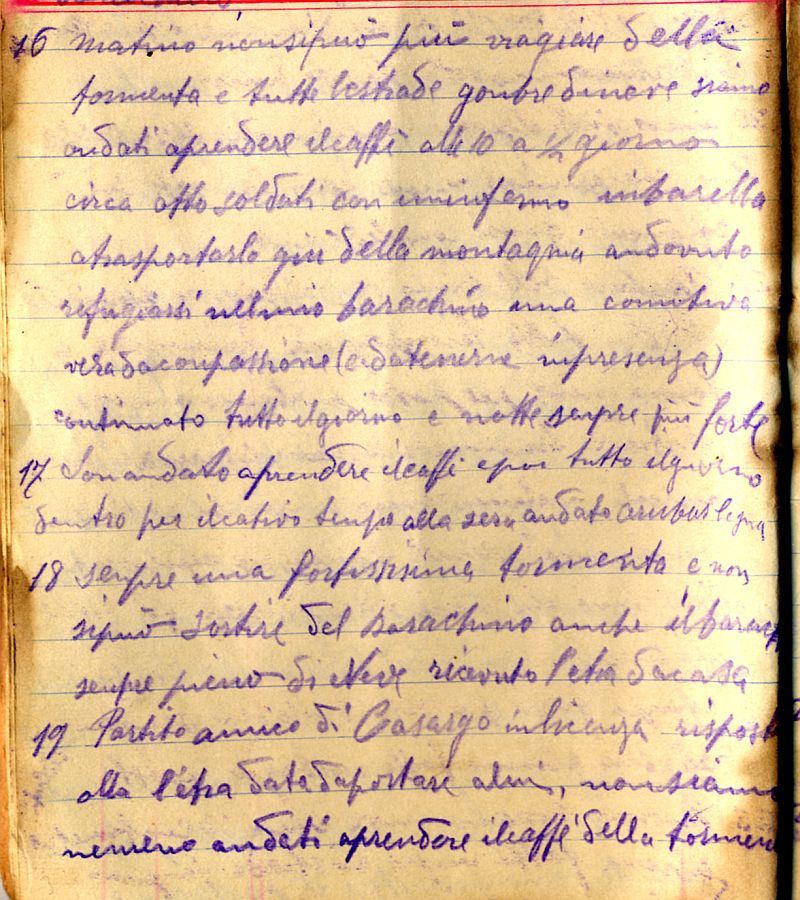 16 matino nonsipuò più viagiare della
tormenta e tutte lestrade goubre dineve siamo
andati aprendere ilcaffè alle 10 a ½ giorno
circa otto soldati con uninfermo inbarella
atrasportarlo giù della montagnia andovuto
refugiarsi nelmio barachino una comitiva
veradacompassione (cidatenerne inpresenza)
continuato tutto ilgiorno e notte senpre più forte
17 Sonandato aprendere ilcaffè epoi tutto ilgiorno
dentro per ilcativo tenpo alla sera andato arubar legna
18 senpre una fortissima tormenta e non
sipuò sortire del barachino anche ilbarach
senpre pieno di Neve ricevuto letra dacasa
19 Partito amico di Casargo inlicenza rispost
alla letra data daportare almi, nonsiamo
nemeno andati aprendere ilcaffè della tormen